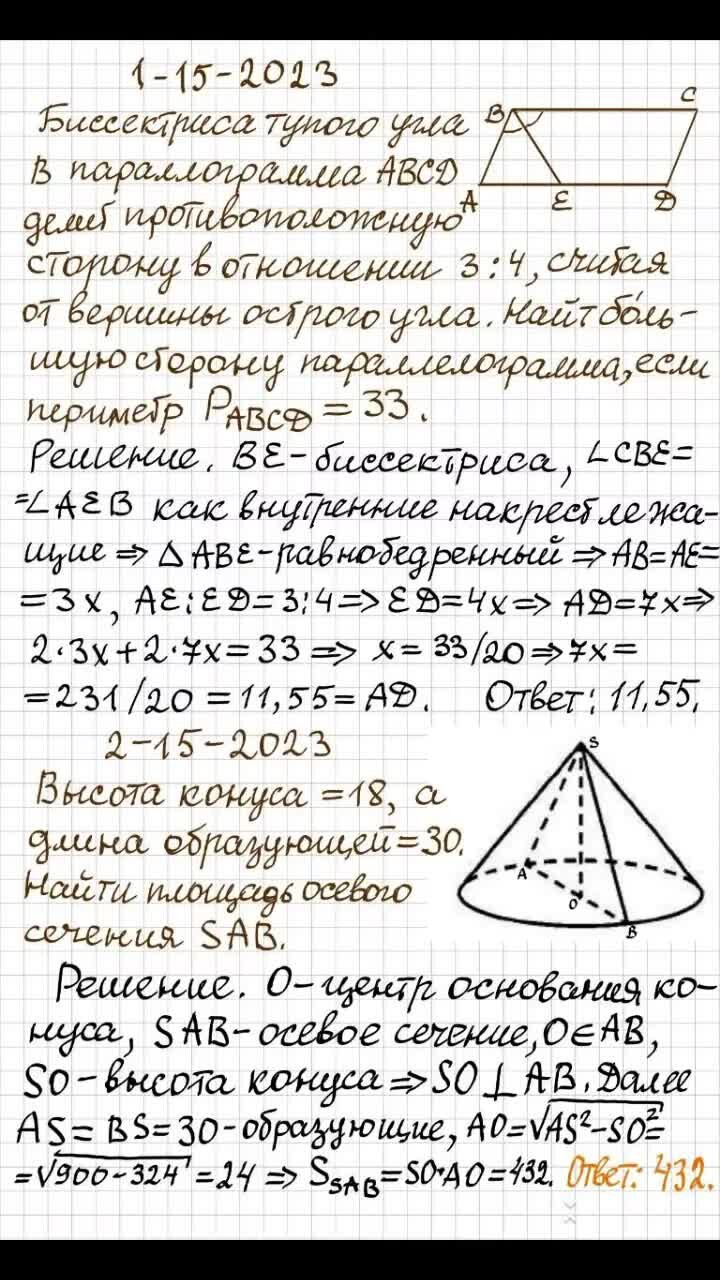 1-15-2023
Биссектриса тупого угла
B C
В параллограмма ABCD
A E D
делит противоположную
сторону в отношении 3:4, считая
от вершины острого угла. Найт бо́ль-
шую сторону параллелограмма, если
периметр P_ABCD = 33.
Решение. BE - биссектриса, ∠CBE=
=∠AEB как внутренние накрест лежа-
щие ⇒ △ABE - равнобедренный ⇒ AB=AE=
=3x, AE:ED=3:4 ⇒ ED=4x ⇒ AD=7x ⇒
2·3x+2·7x=33 ⇒ x=33/20 ⇒ 7x=
=231/20=11,55=AD. Ответ: 11,55.
2-15-2023
S
Высота конуса =18, а
длина образующей=30.
A O B
Найти площадь осевого
сечения SAB.
Решение. O - центр основания ко-
нуса, SAB - осевое сечение, O∈AB,
SO - высота конуса ⇒ SO⊥AB. Далее
AS=BS=30 - образующие, AO=√AS²-SO²=
=√900-324=24 ⇒ S_SAB=SO·AO=432. Ответ: 432.